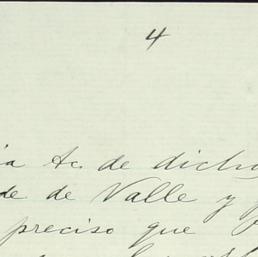 4
ia &c. de dicho
de de Valle y
preciso que